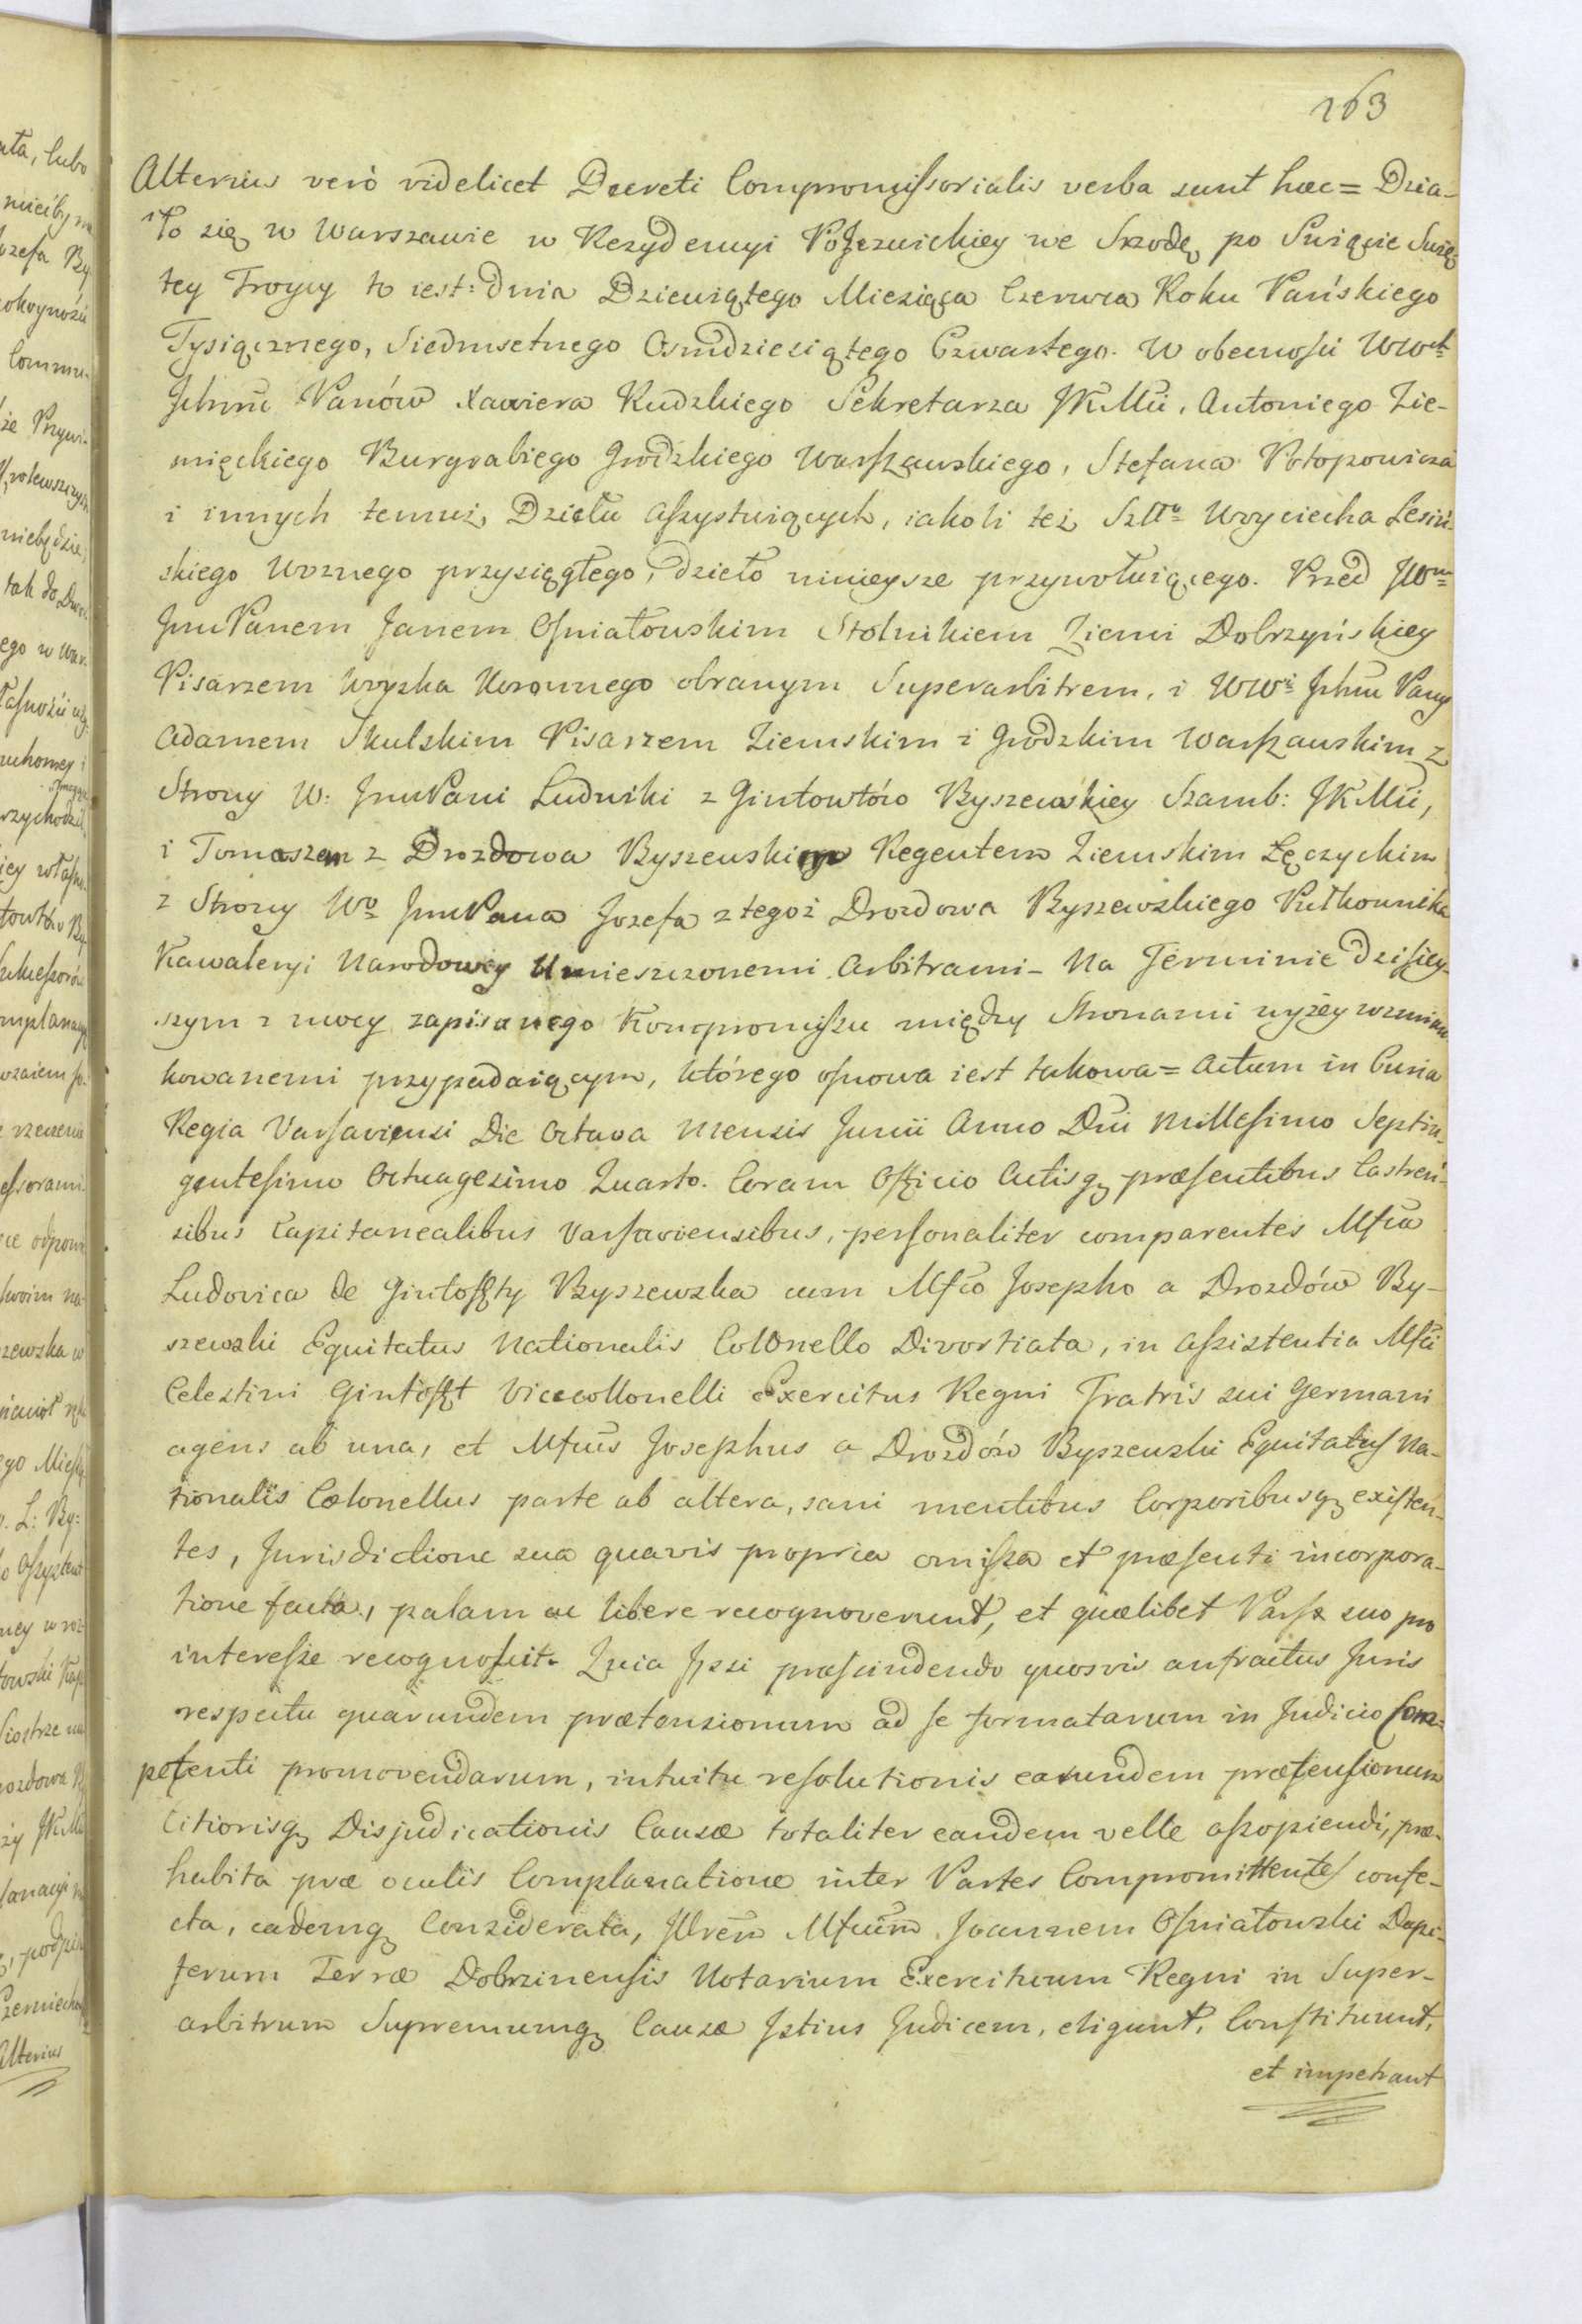 163
Alterius verò videlicet Decreti Compromissorialis verba sunt haec = Dzia-
ło się w Warszawie w Rezydencyi PoJezuickiey we Srzodę po Święcie Swię
tey Troycy to iest: dnia Dziewiątego Miesiąca Czerwca Roku Pańskiego
Tysiącznego, Siedmsetnego Osmdziesiątego Czwartego. W obecności WWch
Jchmć Panów Xawiera Rudzkiego Sekretarza JKMci, Antoniego Zie-
mięckiego Burgrabiego Grodzkiego Warszawskiego, Stefana Potopowicza
i innych temuż Dziełu Assystuiących, iakoli też Woyciecha Lesiń-
skiego Woznego przysięgłego, dzieło ninieysze przywołuiącego. Przed JWm
JmuPanem Janem Ośniałowskim Stolnikiem Ziemi Dobrzyńskiey
Pisarzem Woyska Koronnego obranym Superarbitrem, i WWi Jchmć Pany
Adamem Skulskim Pisarzem Ziemskim i Grodzkim Warszawskim z
Strony W: JmuPani Ludwiki z Gintowtów Byszewskiey Szamb: JKMci,
i Tomaszem z Drozdowa Byszewskim Regentem Ziemskim Łęczyckim
z Strony Wo JmuPana Jozefa z tegoż Drozdowa Byszewskiego Pułkownika
Kawaleryi Narodowey Umieszczonemi Arbitrami - Na Terminie Dzisiey-
szym z mocy zapisanego Kompromissu między Stronami wyżey wzmian
kowanemi przypadaiącym, którego osnowa iest takowa = Actum in Curia
Regia Varsaviensi Die Octava Mensis Junii Anno Dni Millesimo Septin-
gentesimo Octuagesimo Quarto. Coram Officio Actisq; praesentibus Castren-
sibus Capitanealibus Varsaviensibus, personaliter comparentes Mfca
Ludovica de Gintofty Byszewska cum Mfco Josepho a Drozdów By-
szewski Equitatus Nationalis Colonello Divortiata, in assistentia Mfci
Celestini Gintofft Vicecollonelli Exercitus Regni Fratris sui Germani
agens ab una, et Mfcus Josephus a Drozdów Byszewski Equitatus Na-
tionalis Colonellus parte ab altera, sani mentibus Corporibusq; existen-
tes, Jurisdictione sua quavis propria omissa et praesenti incorpora-
tione facta, palam ac libere recognoverunt, et quaelibet Pars suo pro
interesse recognoscit. Quia Jpsi praescindendo quosvis anfractus Juris
respectu quarundem praetensionum ad se formatarum in Judicio Com-
petenti promovendarum, intuitu resolutionis earundem praetensionum
Citiorisq; Disjudicationis Causae totaliter eandem velle assopiendi, prae-
habita prae oculis Complanatione inter Partes Compromittentes confe-
cta, eademq; Considerata, Jllrem Mfcum Joannem Ośniałowski Dapi-
ferum Terrae Dobrzinensis Notarium Exercituum Regni in Super-
arbitrum Supremumq; Causae Jstius Judicem, eligunt, Constituunt,
et impetrant